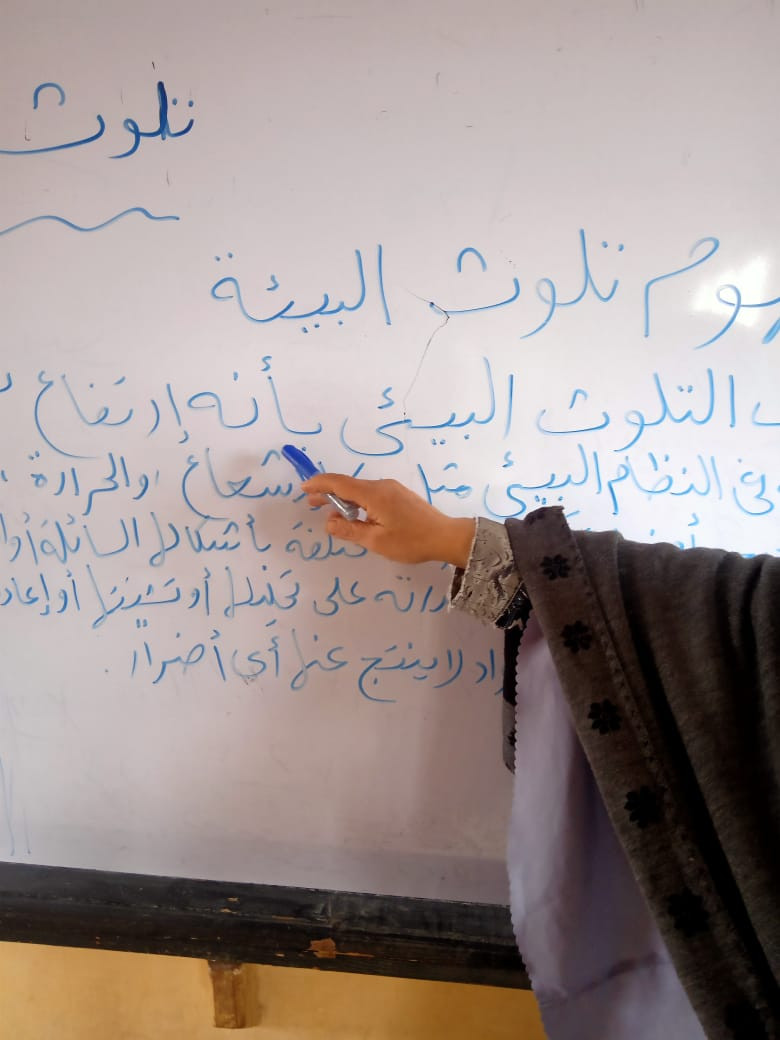 تلوث
تلوث البيئة
التلوث البيئي بأنه إرتفاع
في النظام البيئي مثل الإشعاع والحرارة
بأشكالها السائلة أو
على تحليلها أو تشتيتها أو إعاد
لا ينتج عنها أي أضرار.